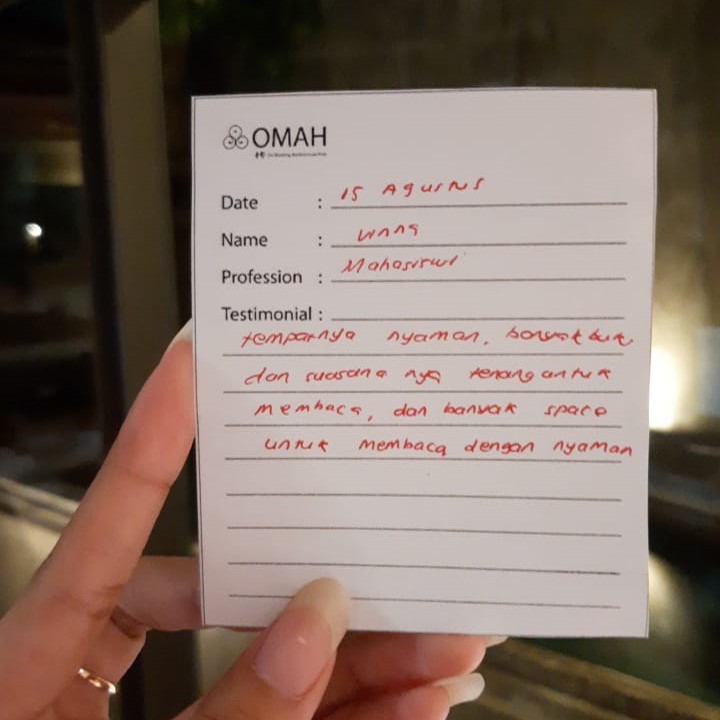 OMAH
Date : 15 Agustus
Name : Wnng
Profession : Mahasiswi
Testimonial :
tempatnya nyaman, banyak buku
dan suasana nya tenang untuk
membaca, dan banyak space
untuk membaca dengan nyaman